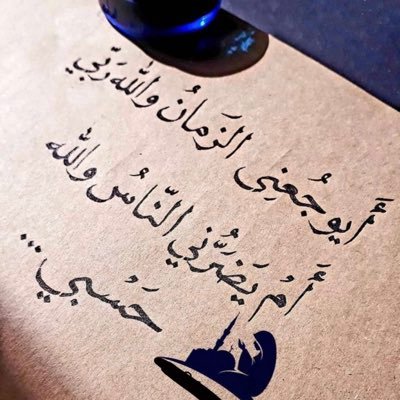 أَيوجُعنِى الزَمانُ واللّٰه رَبّي
أَمْ يَضرَّني النّاسُ واللّٰه
حَسْبي...